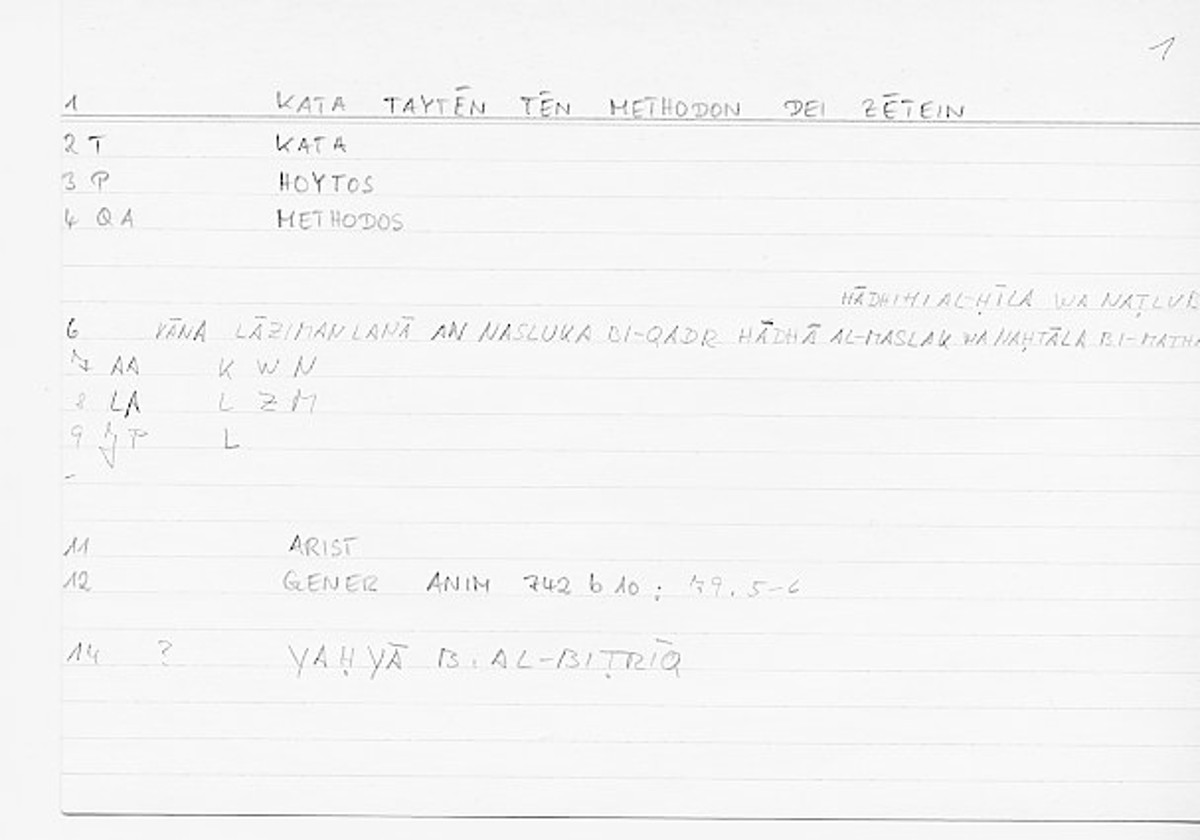 1
1 KATA TAYTĒN TĒN METHODON DEI ZĒTEIN
2 T KATA
3 P HOYTOS
4 QA METHODOS
HĀDHIHI AL-ḤĪLA WA NAṬLUB
6 KĀNA LĀZIMAN LANĀ AN NASLUKA BI-QADR HĀDHĀ AL-MASLAK WA NAḤTĀLA BI-MATHA
7 AA K W N
8 LA L Z M
9 P L
-
11 ARIST
12 GENER ANIM 742 b 10 ; 79.5-6
14 ? YAḤYĀ B. AL-BIṬRĪQ